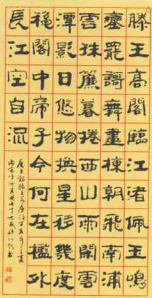 滕王高閣臨江渚佩玉鳴
鸞罷歌舞畫棟朝飛南浦
雲珠簾暮捲西山雨閒雲
潭影日悠物換星移幾度
穐閣中帝子今何在檻外
長江空自流